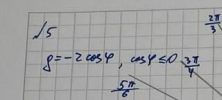 √5
2π/3
ρ = -2 cos φ, cos φ ≤ 0
3π/4
5π/6